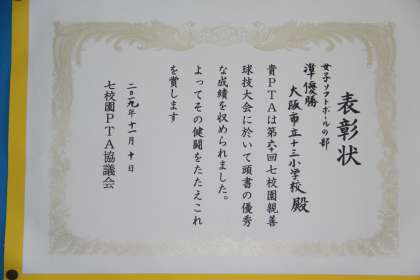 表彰状
女子ソフトボールの部
準優勝
大阪市立十三小学校 殿
貴PTAは第六十回七校園親善
球技大会に於いて頭書の優秀
な成績を収められました。
よってその健闘をたたえこれ
を賞します
二〇一九年十一月十日
七校園PTA協議会